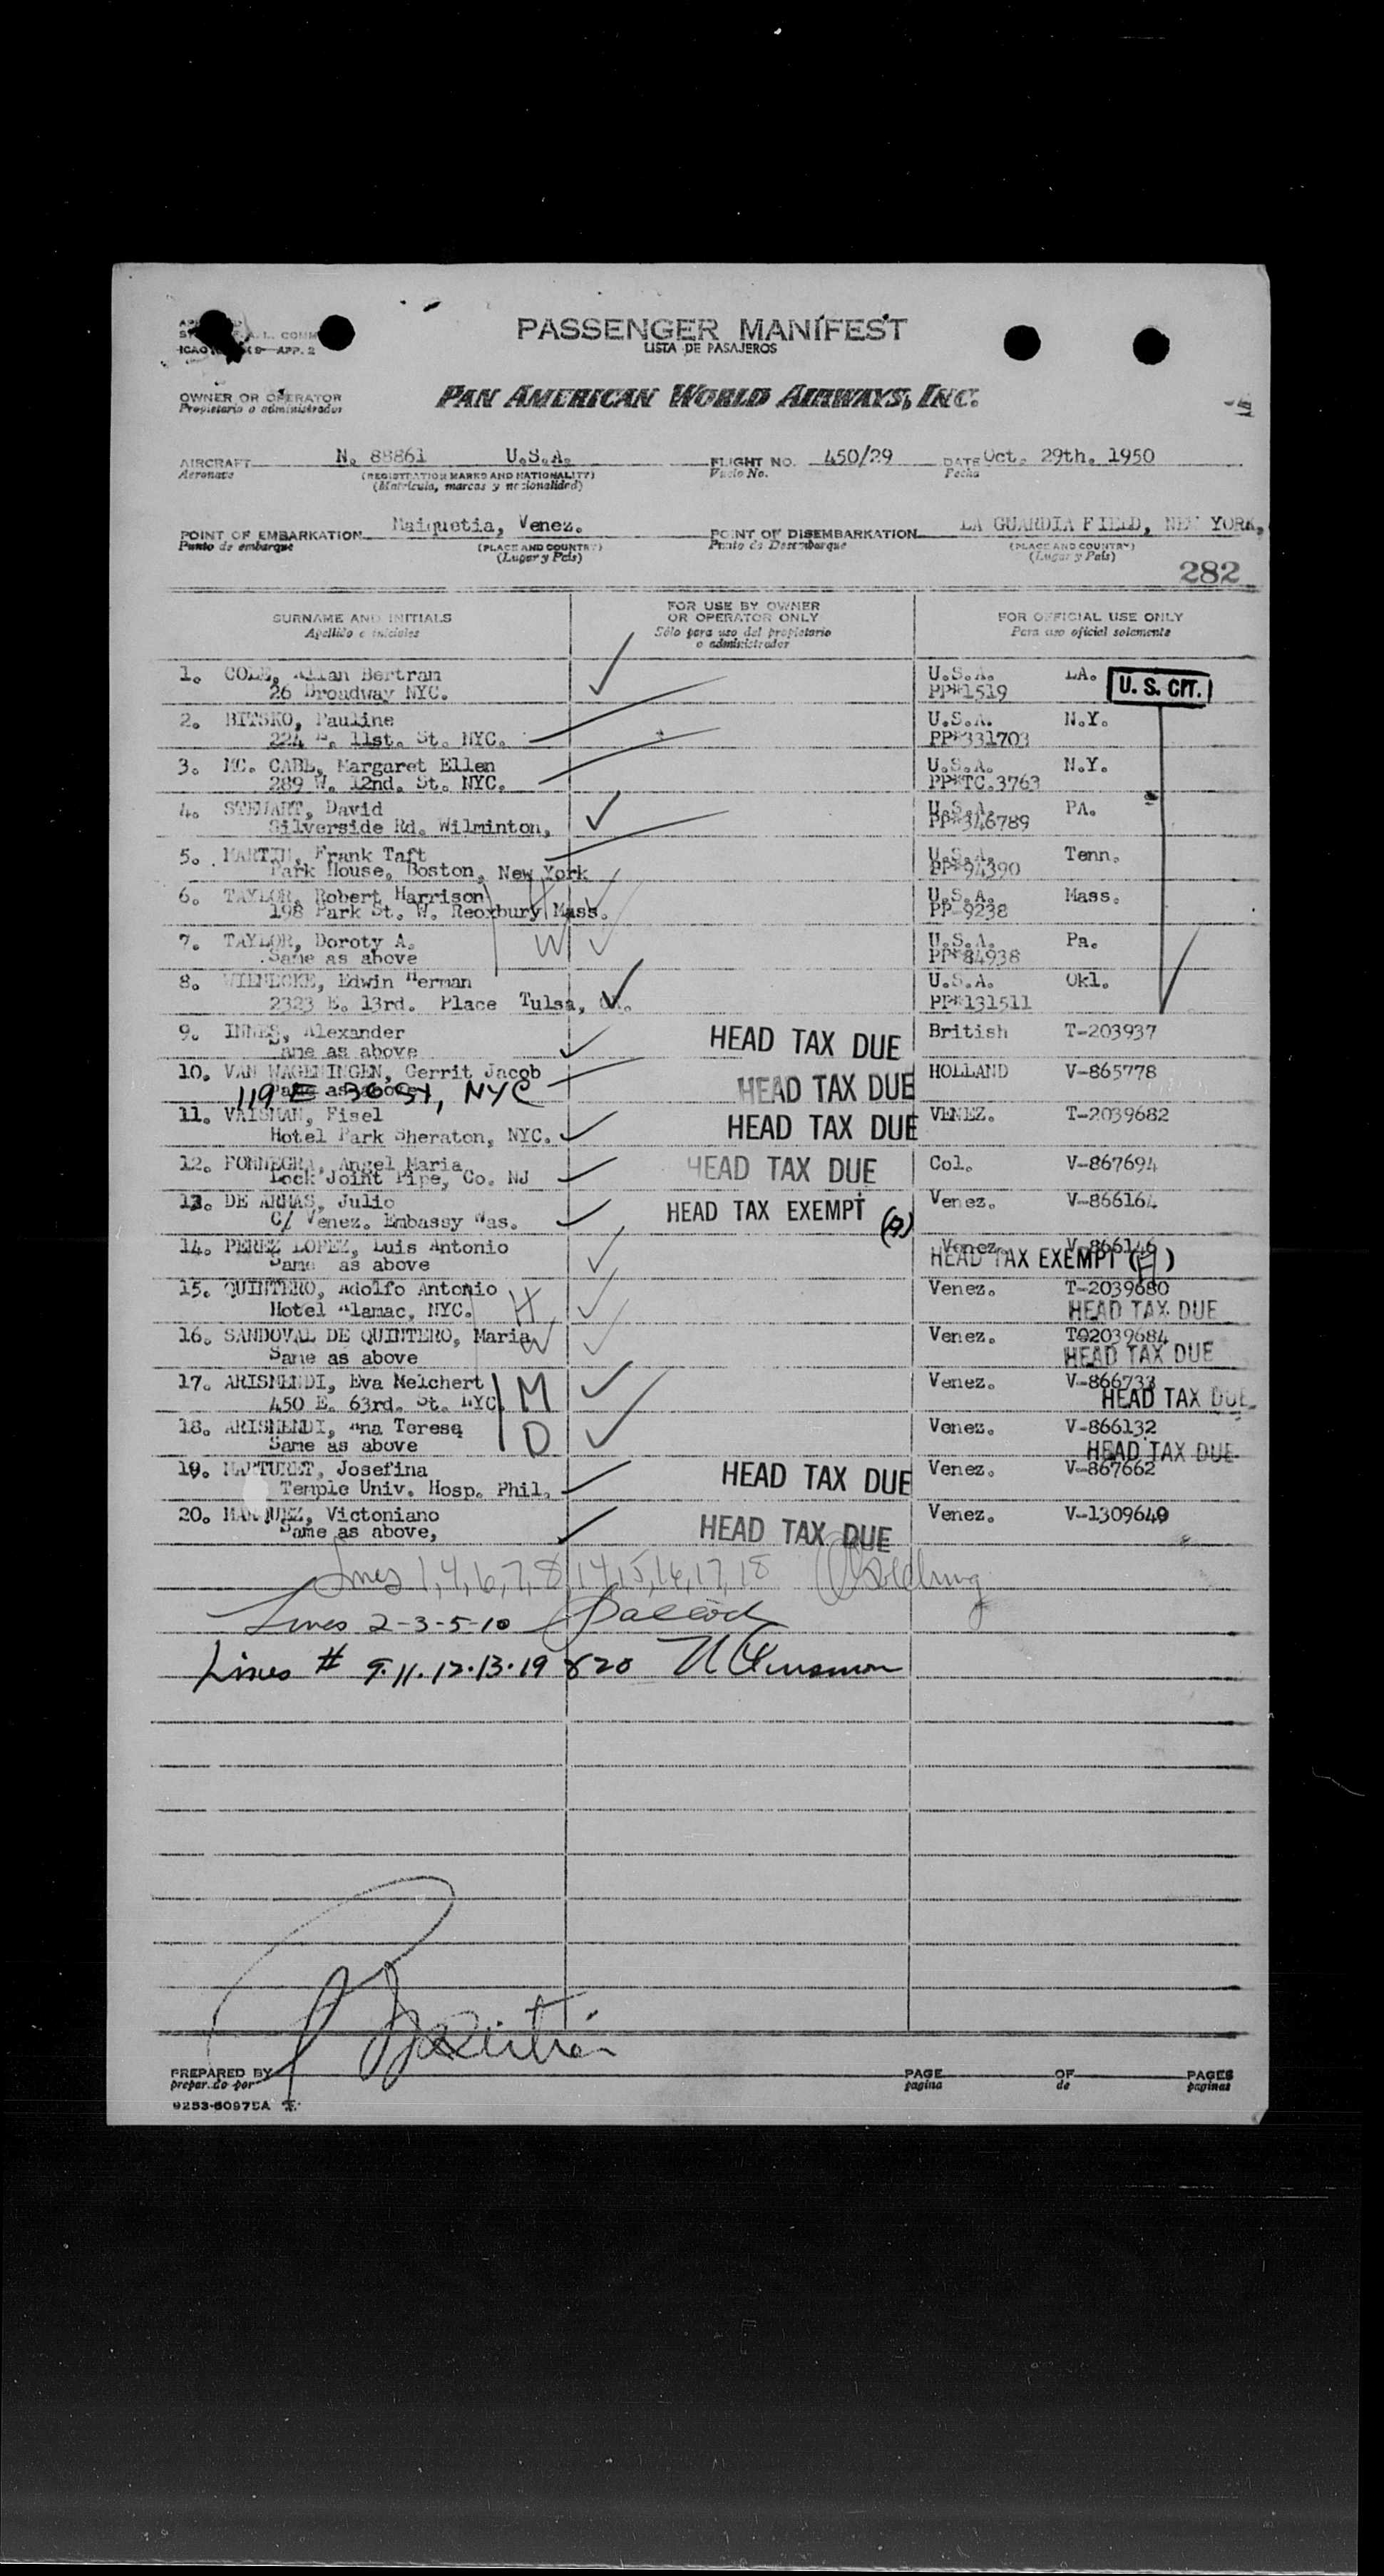 PASSENGER MANIFEST
LISTA DE PASAJEROS
ICAO 9- APP. 2
OWNER OR OPERATOR
Propietario o administrador
PAN AMERICAN WORLD AIRWAYS, INC.
AIRCRAFT N. 88861 U.S.A. FLIGHT NO. 450/29 DATE Oct. 29th. 1950
Aeronave (REGISTRATION MARKS AND NATIONALITY) Vuelo No. Fecha
(Matrícula, marcas y nacionalidad)
POINT OF EMBARKATION Maiquetia, Venez. POINT OF DISEMBARKATION LA GUARDIA FIELD, NEW YORK,
Punto de embarque (PLACE AND COUNTRY) Punto de Desembarque (PLACE AND COUNTRY)
(Lugar y País) (Lugar y País)
282
SURNAME AND INITIALS FOR USE BY OWNER OR OPERATOR ONLY FOR OFFICIAL USE ONLY
Apellido e iniciales Sólo para uso del propietario o administrador Para uso oficial solamente
1. COLE, Allan Bertram U.S.A. LA. U. S. CIT.
26 Broadway NYC. PP#1519
2. BITSKO, Pauline U.S.A. N.Y.
224 E. 11st. St. NYC. PP#331703
3. MC. CABE, Margaret Ellen U.S.A. N.Y.
289 W. 12nd. St. NYC. PP#TC.3763
4. STEWART, David U.S.A. PA.
Silverside Rd. Wilminton, PP#346789
5. MARTIN, Frank Taft U.S.A. Tenn.
Park House, Boston, New York PP#94390
6. TAYLOR, Robert Harrison H U.S.A. Mass.
198 Park St. W. Reoxbury Mass. PP-9238
7. TAYLOR, Doroty A. W U.S.A. Pa.
Same as above PP#84938
8. WIENECKE, Edwin Herman U.S.A. Okl.
2323 E. 13rd. Place Tulsa, OK. PP#131511
9. INNES, Alexander HEAD TAX DUE British T-203937
Same as above
10. VAN WAGENINGEN, Gerrit Jacob HEAD TAX DUE HOLLAND V-865778
Same as above
119 E 36 St, NYC
11. VAISMAN, Fisel HEAD TAX DUE VENEZ. T-2039682
Hotel Park Sheraton, NYC.
12. FONNEGRA, Angel Maria HEAD TAX DUE Col. V-867694
Lock Joint Pipe, Co. NJ
13. DE ARMAS, Julio HEAD TAX EXEMPT Venez. V-866164
C/ Venez. Embassy Was.
14. PEREZ LOPEZ, Luis Antonio Venez. V-866146
Same as above HEAD TAX EXEMPT
15. QUINTERO, Adolfo Antonio H Venez. T-2039680
Hotel Alamac, NYC. HEAD TAX DUE
16. SANDOVAL DE QUINTERO, Maria W Venez. T02039684
Same as above HEAD TAX DUE
17. ARISMENDI, Eva Melchert M Venez. V-866733
450 E. 63rd. St. NYC. HEAD TAX DUE
18. ARISMENDI, Ana Teresa D Venez. V-866132
Same as above HEAD TAX DUE
19. MARTURET, Josefina HEAD TAX DUE Venez. V-867662
Temple Univ. Hosp. Phil.
20. MARQUEZ, Victoniano HEAD TAX DUE Venez. V-1309640
Same as above,
Lines 1,4,6,7,8,14,15,16,17,18
Lines 2-3-5-10
Lines # 9.11.12.13.19 & 20
PREPARED BY PAGE OF PAGES
preparado por pagina de paginas
9253-60975A